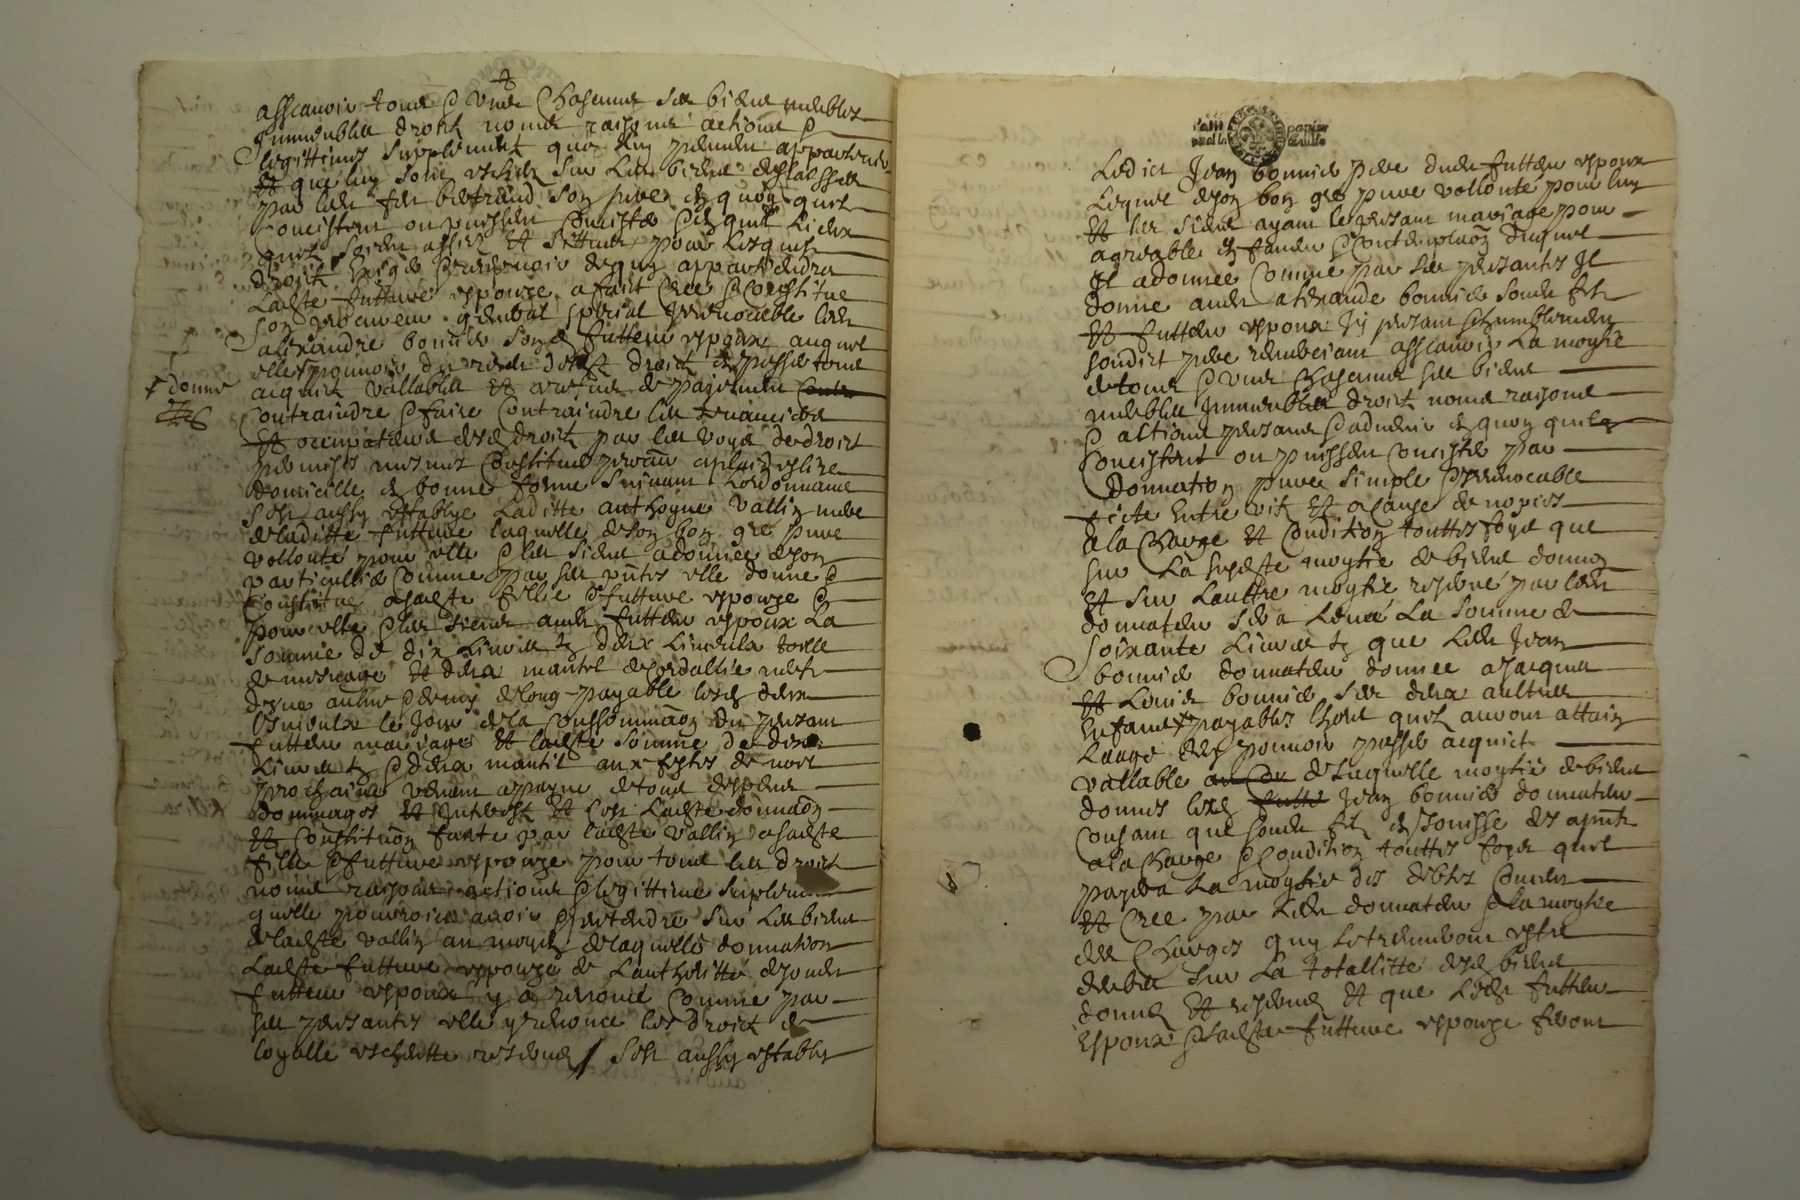 asscavoir tous & ungs chascungs ses biens meubles
Immeubles droitz noms raisons actions &
legittimes supplement que luy peuvent appartenir
et que luy sont escheuz sur les biens delaissés
par led feu bertrand son pere en quoy quilz
concistent ou puissent concister & en quelz lieux
quilz soient assis et scittues pour lesquels
droitz exiger & recepvoir de quy appartiendra
ladite future espouze a faict cree & constitue
son procureur general special irrevocable led
alexandre bonnier son futeur espoux auquel
elle pouvoir du recu desd droitz en passer tous
+ donne
acquitz vallables et a reffus de payement
contraindre & faire contraindre les tenanciers
et occupateurs desd droitz par les voyes de droict
domicille en bonne forme suivant lordonnance
sest aussy establye laditte anthoyne vallin mere
de laditte future laquelle de son bon gre pure
vollonté pour elle & les siens a donnee de son
particullier comme par ses pntes elle donne &
constitue a sadite fillie & future espouze &
pour elle & les siens aud futeur espoux la
somme de dix livres tz deux linceulx toille
de mesnage et deux mantil de cordallie mesl
dune aulne & demy de long payable lesd deux
linceulx le jour de la consommaon du present
futeur mariage et ladite somme de dix
livres tz & deux mantil aux festes de noel
prochaine venant a peyne de tous despens
dommages et Interest et sest ladite donnaon
et constituon faite par ladite vallin a sadite
fille & future espouze pour tous les droitz
noms raisons actions & legittime suplement
quelle pourroit avoir & pretendre sur les biens
de ladite vallin au moyen de laquelle donnation
ladite future espouze de lauthoritté de sond
futeur espoux y a renoncé comme par
ses presantes elle y renonce les droitz de
loyalle escheutte reserves / sest aussy establis
Ledict Jean bonnier pere dud futeur espoux
Lequel de son bon gre pure vollonté pour luy
et les siens ayant le presant mariage pour
agreable en faveur & contemplaon duquel
Il a donnee comme par ses presantes Il
donne aud alexandre bonnier sond filz
et futeur espoux Icy presant & humblement
sondict pere remerciant asscavoir La moytie
de tous & ungs chascungs ses biens
meubles Immeubles droitz noms raisons
& actions presans & advenir en quoy quilz
concistent ou puissent concister par
donnation pure simple & irrevocable
faite entre vifz et a cause de nopces
a la charge et condition touttes foys que
sur La susdite moytie de biens donnes
et sur lauttre moytie reservé par led
donnateur sera Levé La somme de
soixante Livres tz que Led Jean
bonnier donnateur donnee a Jacques
et Louis bonnier ses deux aultres
enfans payables lhors quilz auront attain
Leage de pouvoir passer acquict
vallable de Laquelle moytie de biens
donnes lesd Jean bonnier donnateur
consant que sond filz en Jouisse des a pnt
a la charge & condition touttes foyes quil
payera La moytie des debtes
et cree par Led donnateur & la moytie
des charges quy se treuveront estre
deubes sur La totallitte desd biens
donnes et reserves et que Lesd futeur
espoux & ladite future espouze feront